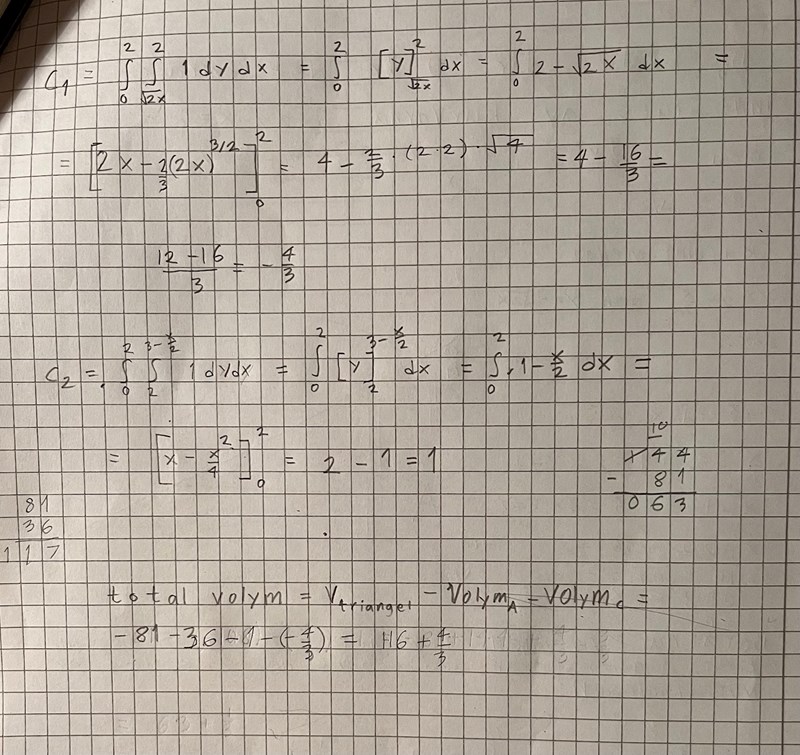 C₁ = ∫₀² ∫_{√2x}² 1 dy dx = ∫₀² [y]_{√2x}² dx = ∫₀² 2 - √2x dx =
= [2x - 2/3(2x)^{3/2}]₀² = 4 - 2/3 · (2·2) · √4 = 4 - 16/3 =
12 - 16 / 3 = - 4/3
C₂ = ∫₀² ∫₂^{3-x/2} 1 dy dx = ∫₀² [y]₂^{3-x/2} dx = ∫₀² 1 - x/2 dx =
= [x - x²/4]₀² = 2 - 1 = 1
10
144
- 81
063
81
36
117
total volym = V_triangel - Volym_A - Volym_C =
- 81 - 36 - 1 - (-4/3) = 116 + 4/3